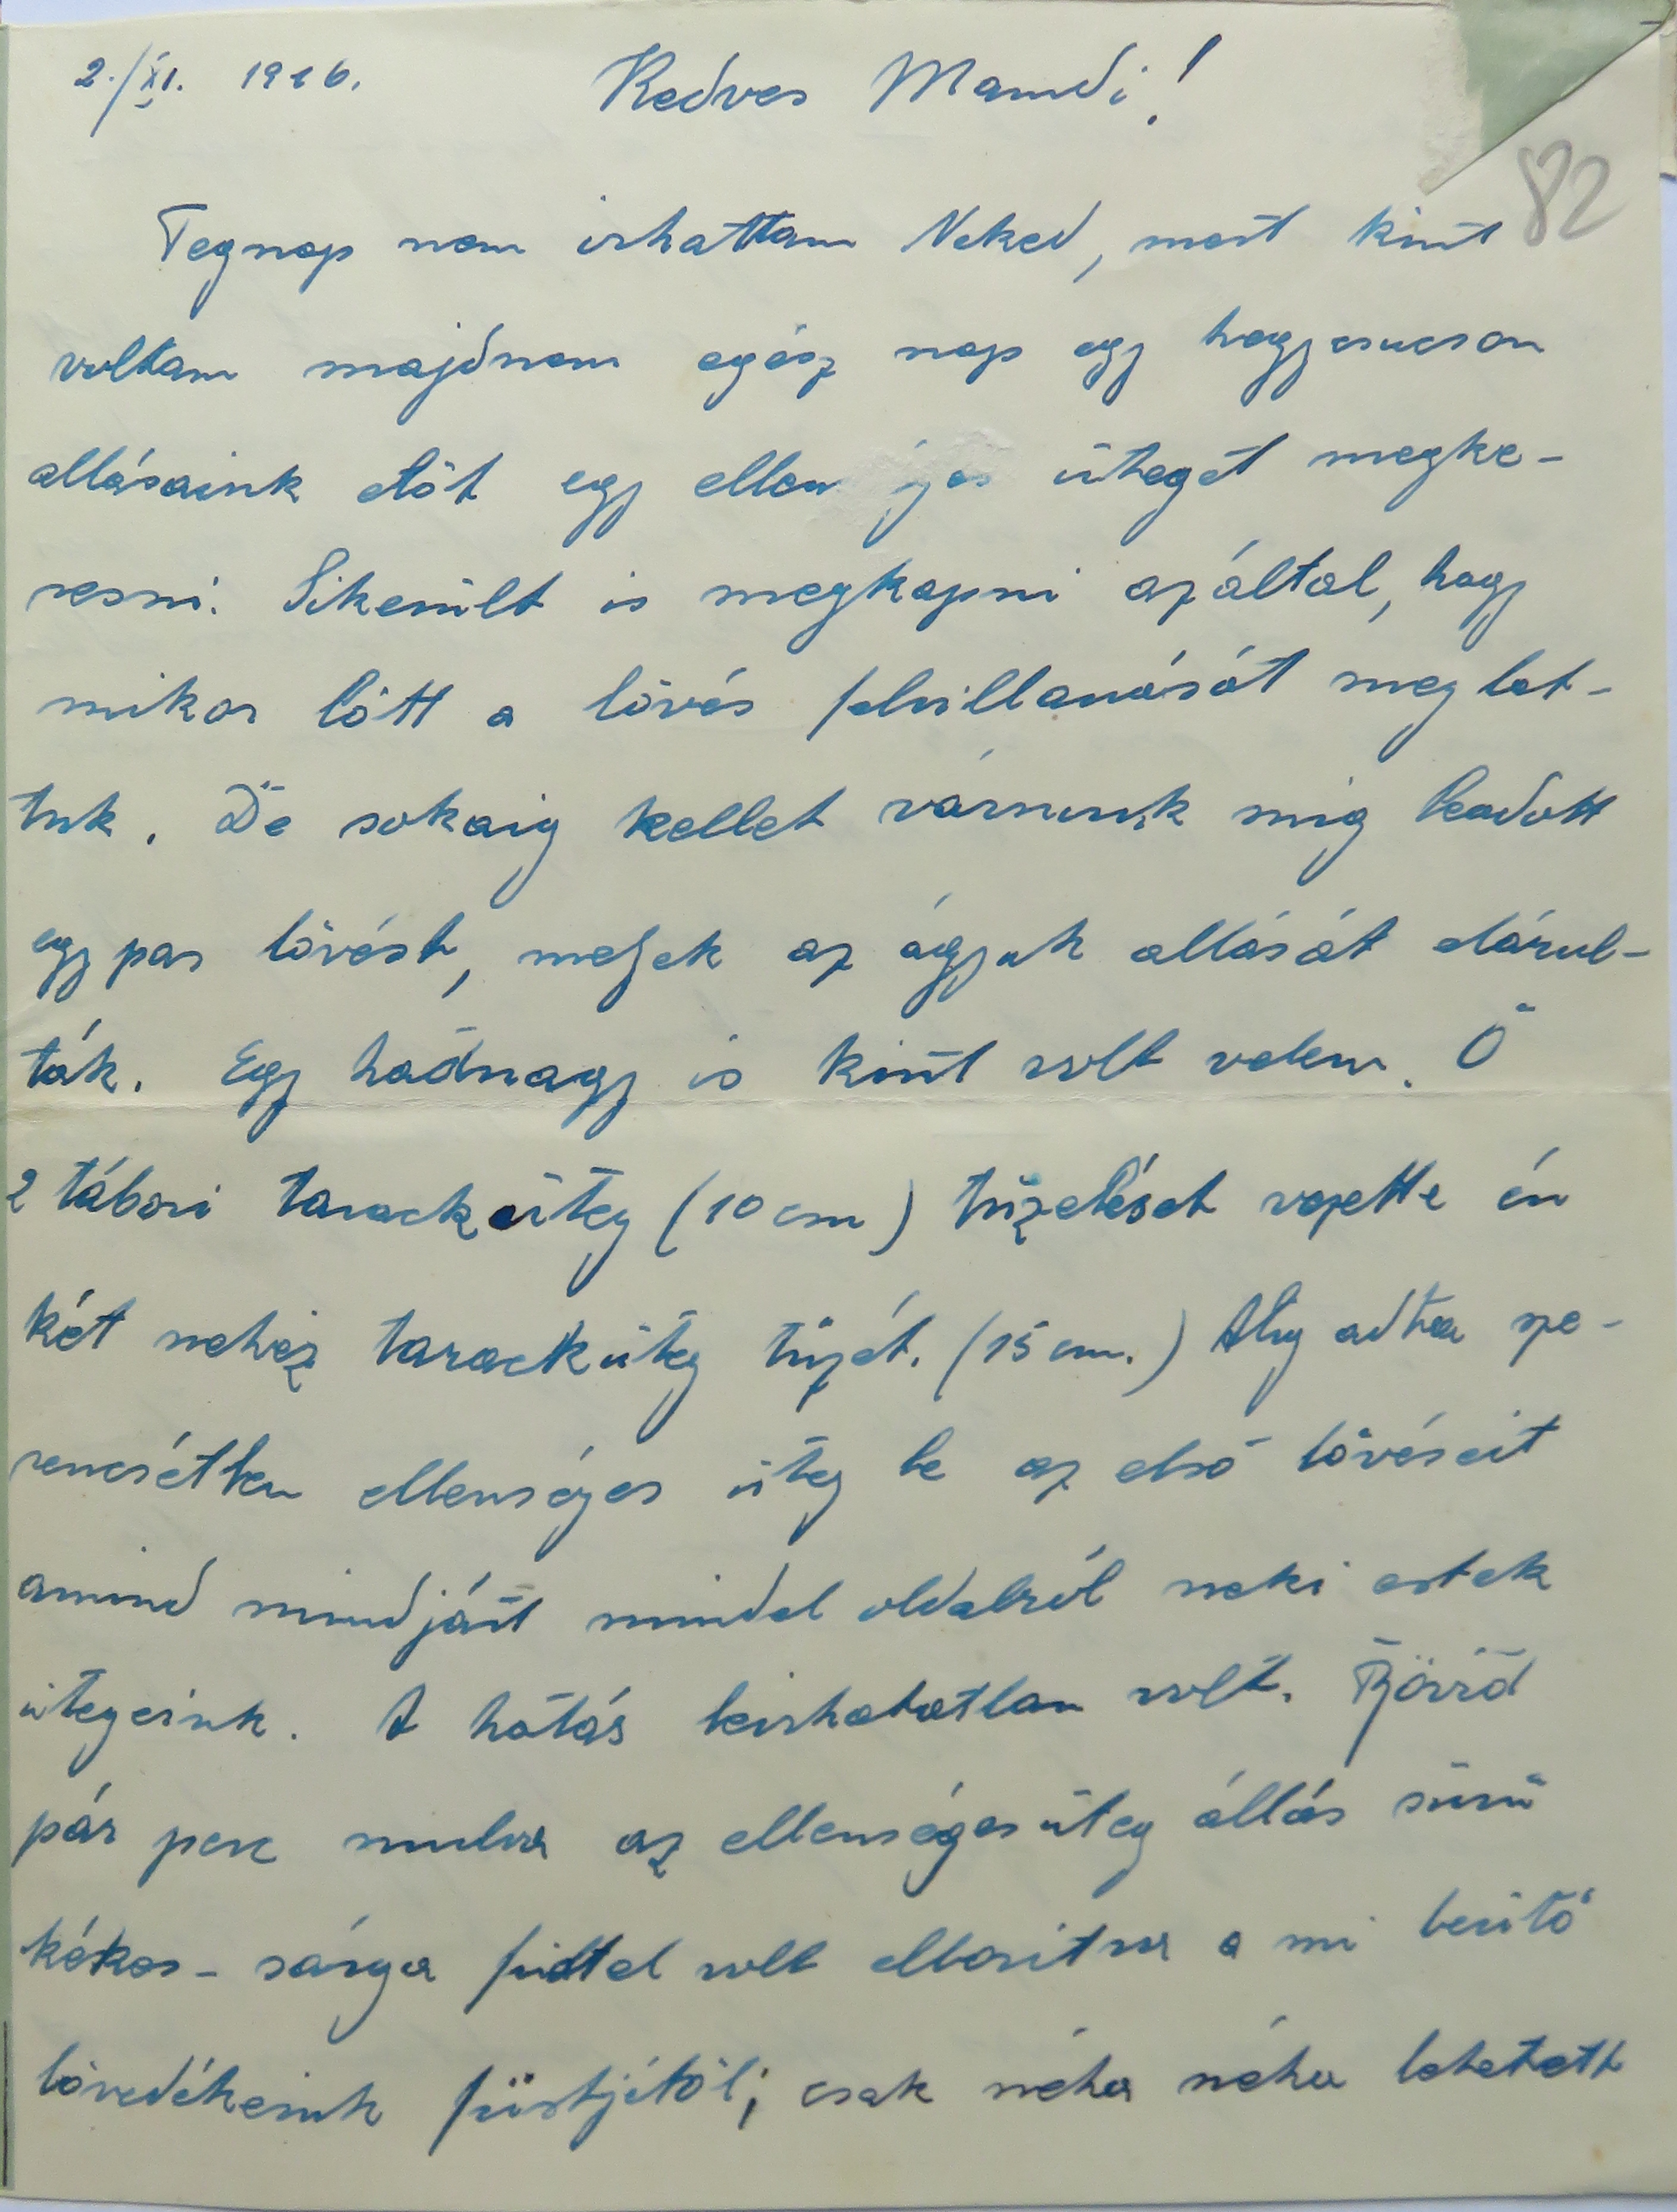 2./XI. 1916. Kedves Mamdi!
82
Tegnap nem irhattam Neked, mert kint
voltam majdnem egész nap egy hegycsucson
allásaink elöt egy ellen ges üteget megke-
resni. Sikerült is megkapni azáltal, hogy
mikor lött a lövés felvillanását meglat-
tuk. De sokaig kellet várnunk mig leadott
egy par lövést, melyek az ágyuk allását elárul-
ták. Egy hadnagy is kint volt velem. Ő
2 tábori tarackküteg (10 cm) tüzelését vezette én
két nehéz tarackküteg tüzét. (15 cm.) Alig adta sze-
rencsétlen ellenséges üteg le az első lövéseit
amind mindjárt mindel oldalról neki estek
ütegeink. A hatás leirhatatlan volt. Rövid
pár perc mulva az ellenséges üteg állás sürü
kékes-sárga füsttel volt elboritva a mi beütő
lövedékeink füstjétöl; csak néha néha lehetett